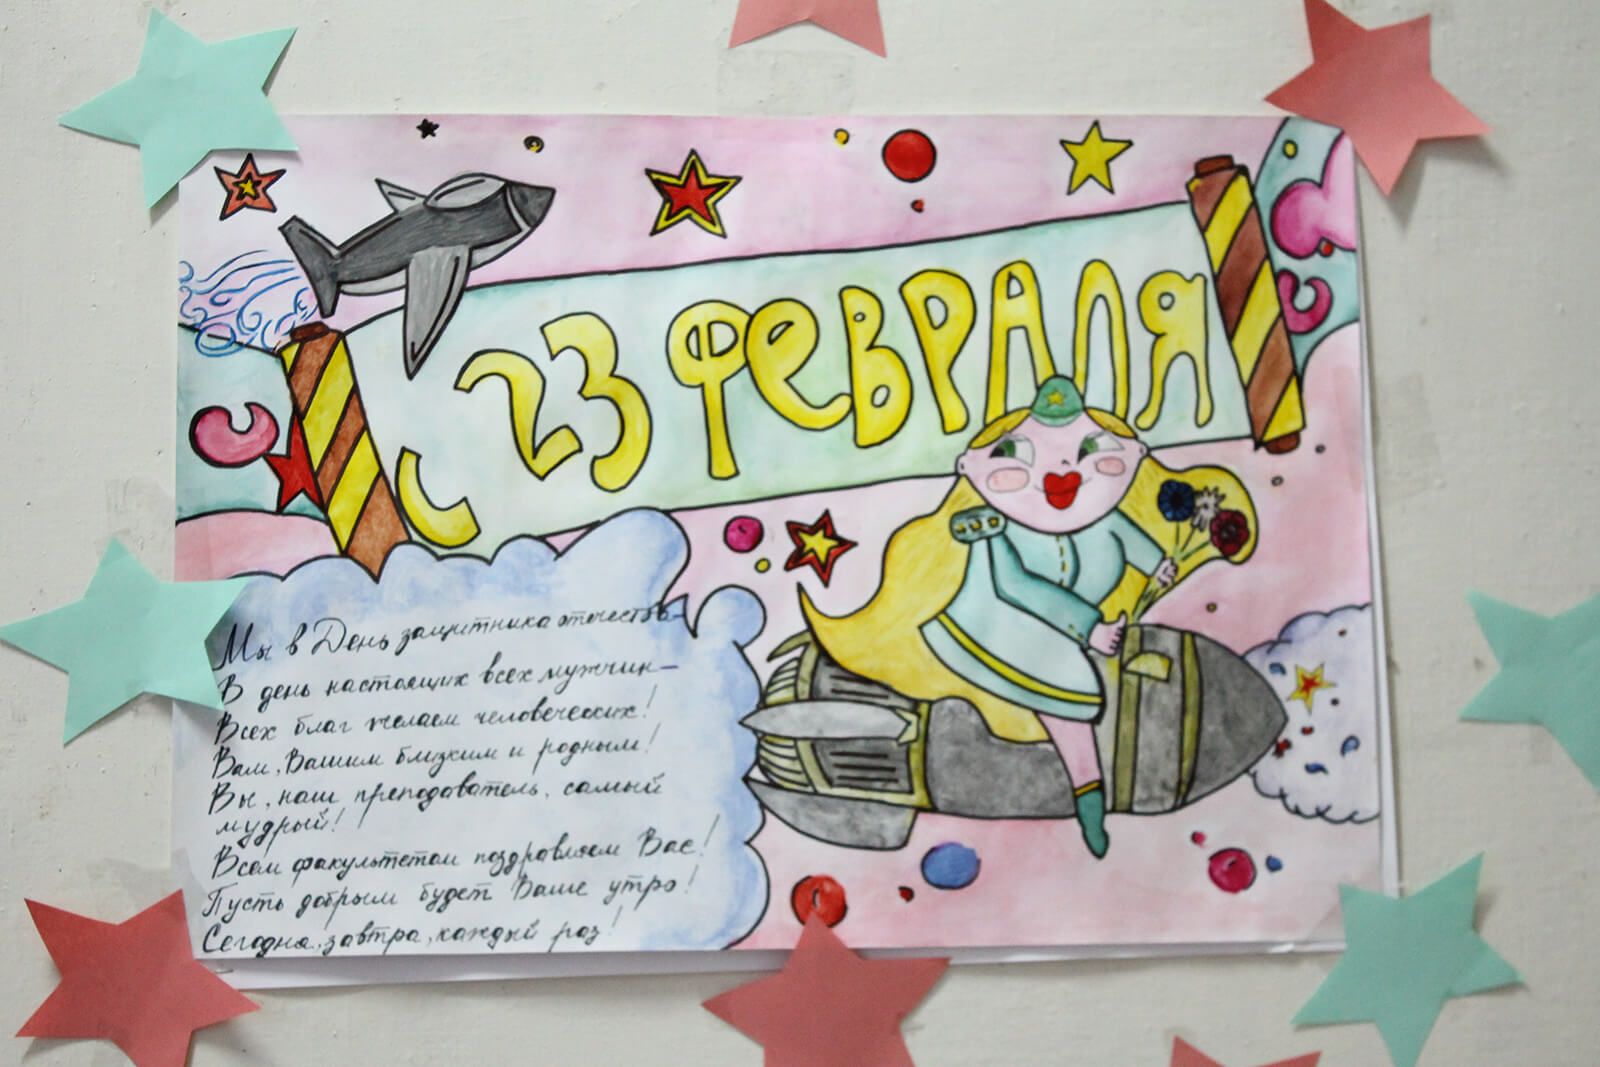 С 23 ФЕВРАЛЯ
Мы в День защитника отечества—
В день настоящих всех мужчин—
Всех благ желаем человеческих!
Вам, Вашим близким и родным!
Вы, наш преподаватель, самый
мудрый!
Всем факультетом поздравляем Вас!
Пусть добрым будет Ваше утро!
Сегодня, завтра, каждый раз!